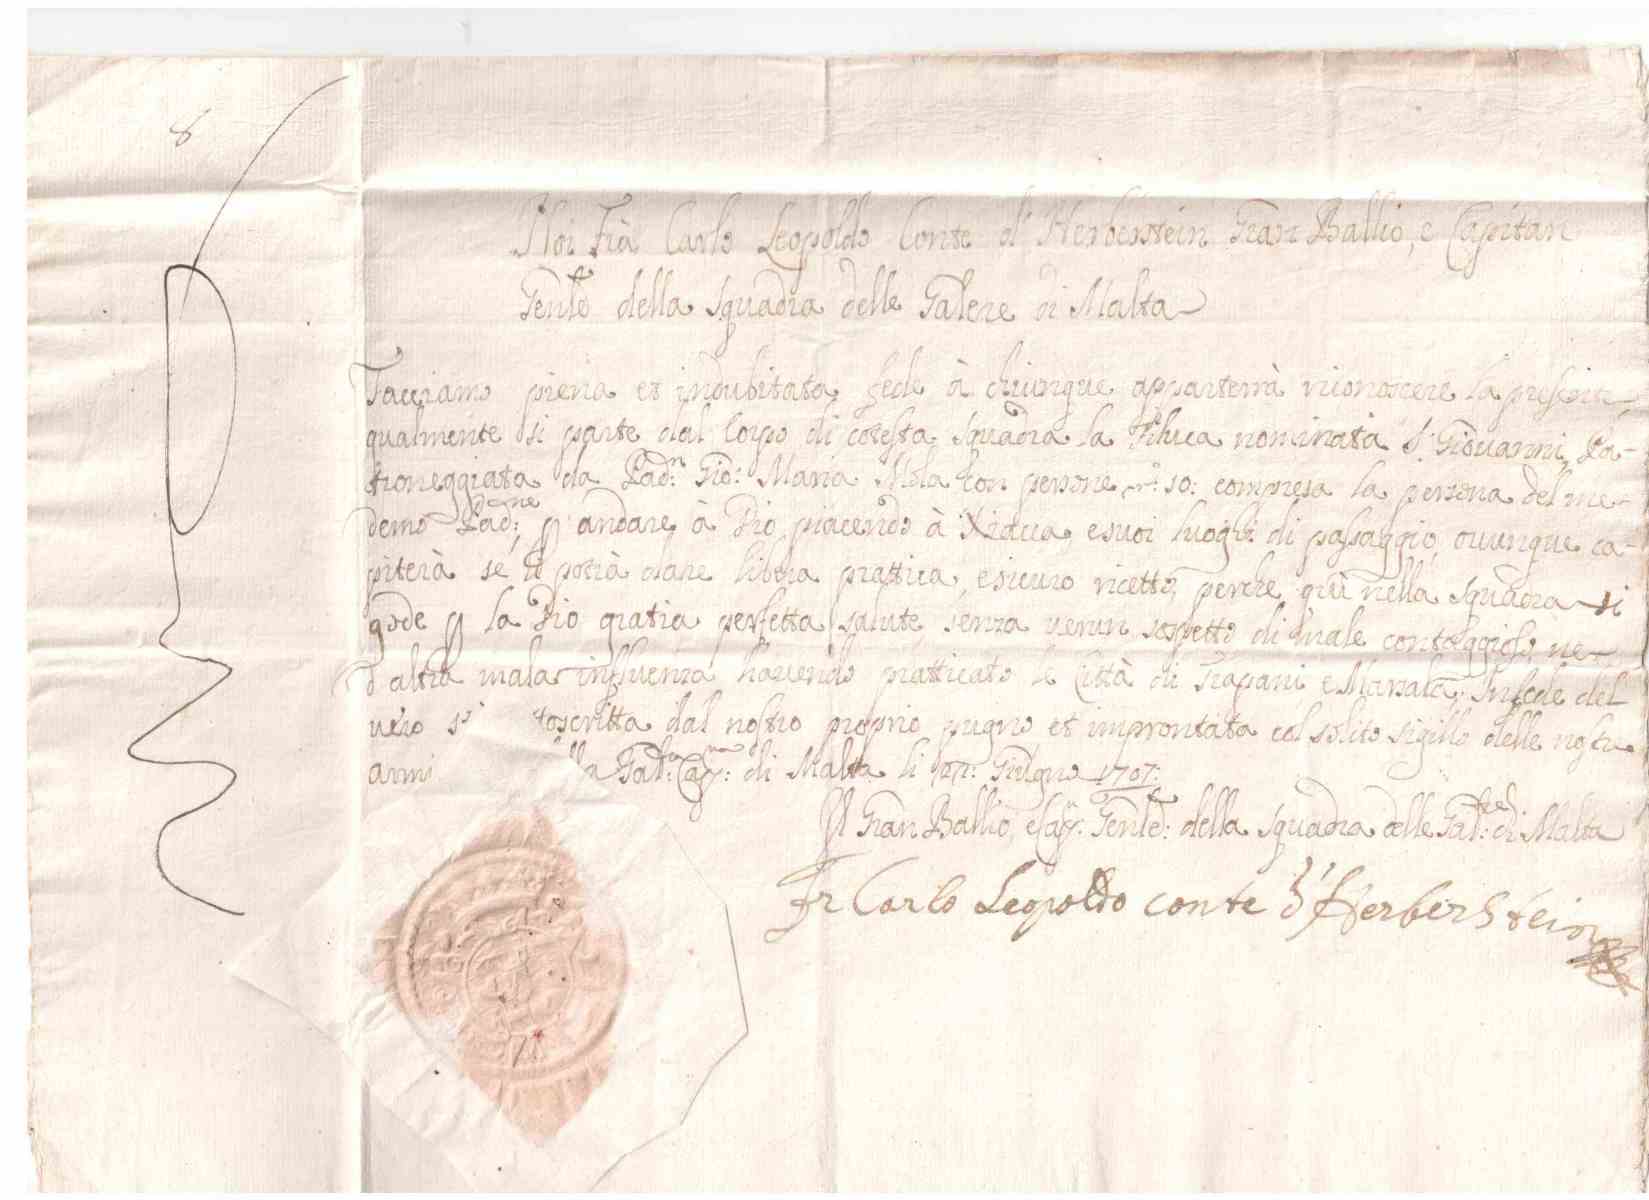 8
Noi Frà Carlo Leopoldo Conte d'Herberstein Gran Ballio, e Capitan
Genle della Squadra delle Galere di Malta
Facciamo piena et indubitata fede à chiunque apparterrà riconoscere la presente
qualmente si parte dal Corpo di cotesta Squadra la Filuca nominata S. Giovanni, Pa-
troneggiata da Padn: Gio: Maria Mola con persone nro: 10: compresa la persona del me-
demo Padne: p andare à Dio piacendo à Xiacca, e suoi luoghi di passaggio, ovunque ca-
piterà se li potrà dare libera prattica, e sicuro ricetto, perche quì nella Squadra si
gode p la Dio gratia perfetta salute senza verun sospetto di male contaggioso, ne
d'altra mala influenza havendo pratticato le Città di Trapani, e Marsala; In fede del
vero toscritta dal nostro proprio pugno et improntata col solito sigillo delle nostre
armi lla Gal: Capna: di Malta li Giugno 1707:
Il Gran Ballio, e Cap: Genle: della Squadra delle Galre: di Malta
Fr Carlo Leopoldo conte d'Herberstein